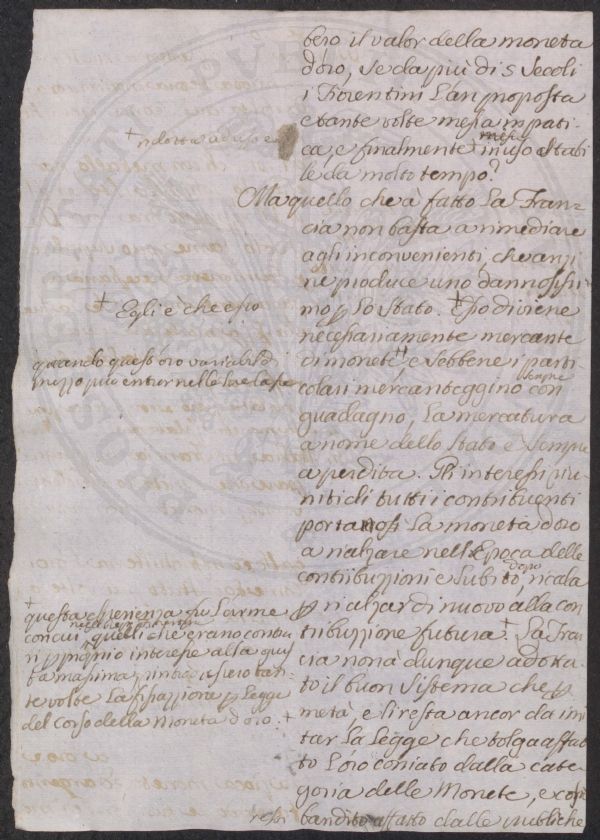 bero il valor della moneta
d'oro, se da più di 5 secoli
i Fiorentini l'an proposta
e tante volte messa in prati
ca, e finalmente + messa in uso stabi
le da molto tempo?
+ ndotta ad uso e
Ma quello che à fatto la Fran=
cia non basta a rimediare
agli inconvenienti, che anzi
ne produce uno dannosissi
mo p lo Stato. + Esso diviene
necessariamente mercante
di monete, e sebbene i parti
colari mercanteggino sempre con
guadagno, la mercatura
a nome dello Stato è sempre
a perdita. Gli interessi riu
niti di tutti i contribuenti
portano la moneta d'oro
a rialzare nell'Epoca delle
contribuzioni e subito dopo, ricala
p rialzar di nuovo alla con
tribuzione futura. + La Fran
cia non à dunque adotta
to il buon sistema che p
metà, e li resta ancor da imi
tar la legge che tolga affat
to l'oro coniato dalla cate
goria delle Monete, e
bandito affatto dalle publiche
+ Egli è che esso
quando quest'oro variabil di
prezzo può entrar nelle
+
questa esperienza fu l'arme
con cui quelli che erano contra
ri p proprio interesse alla
ta massima
te volte la fissazione p legge
del corso della Moneta d'oro. +